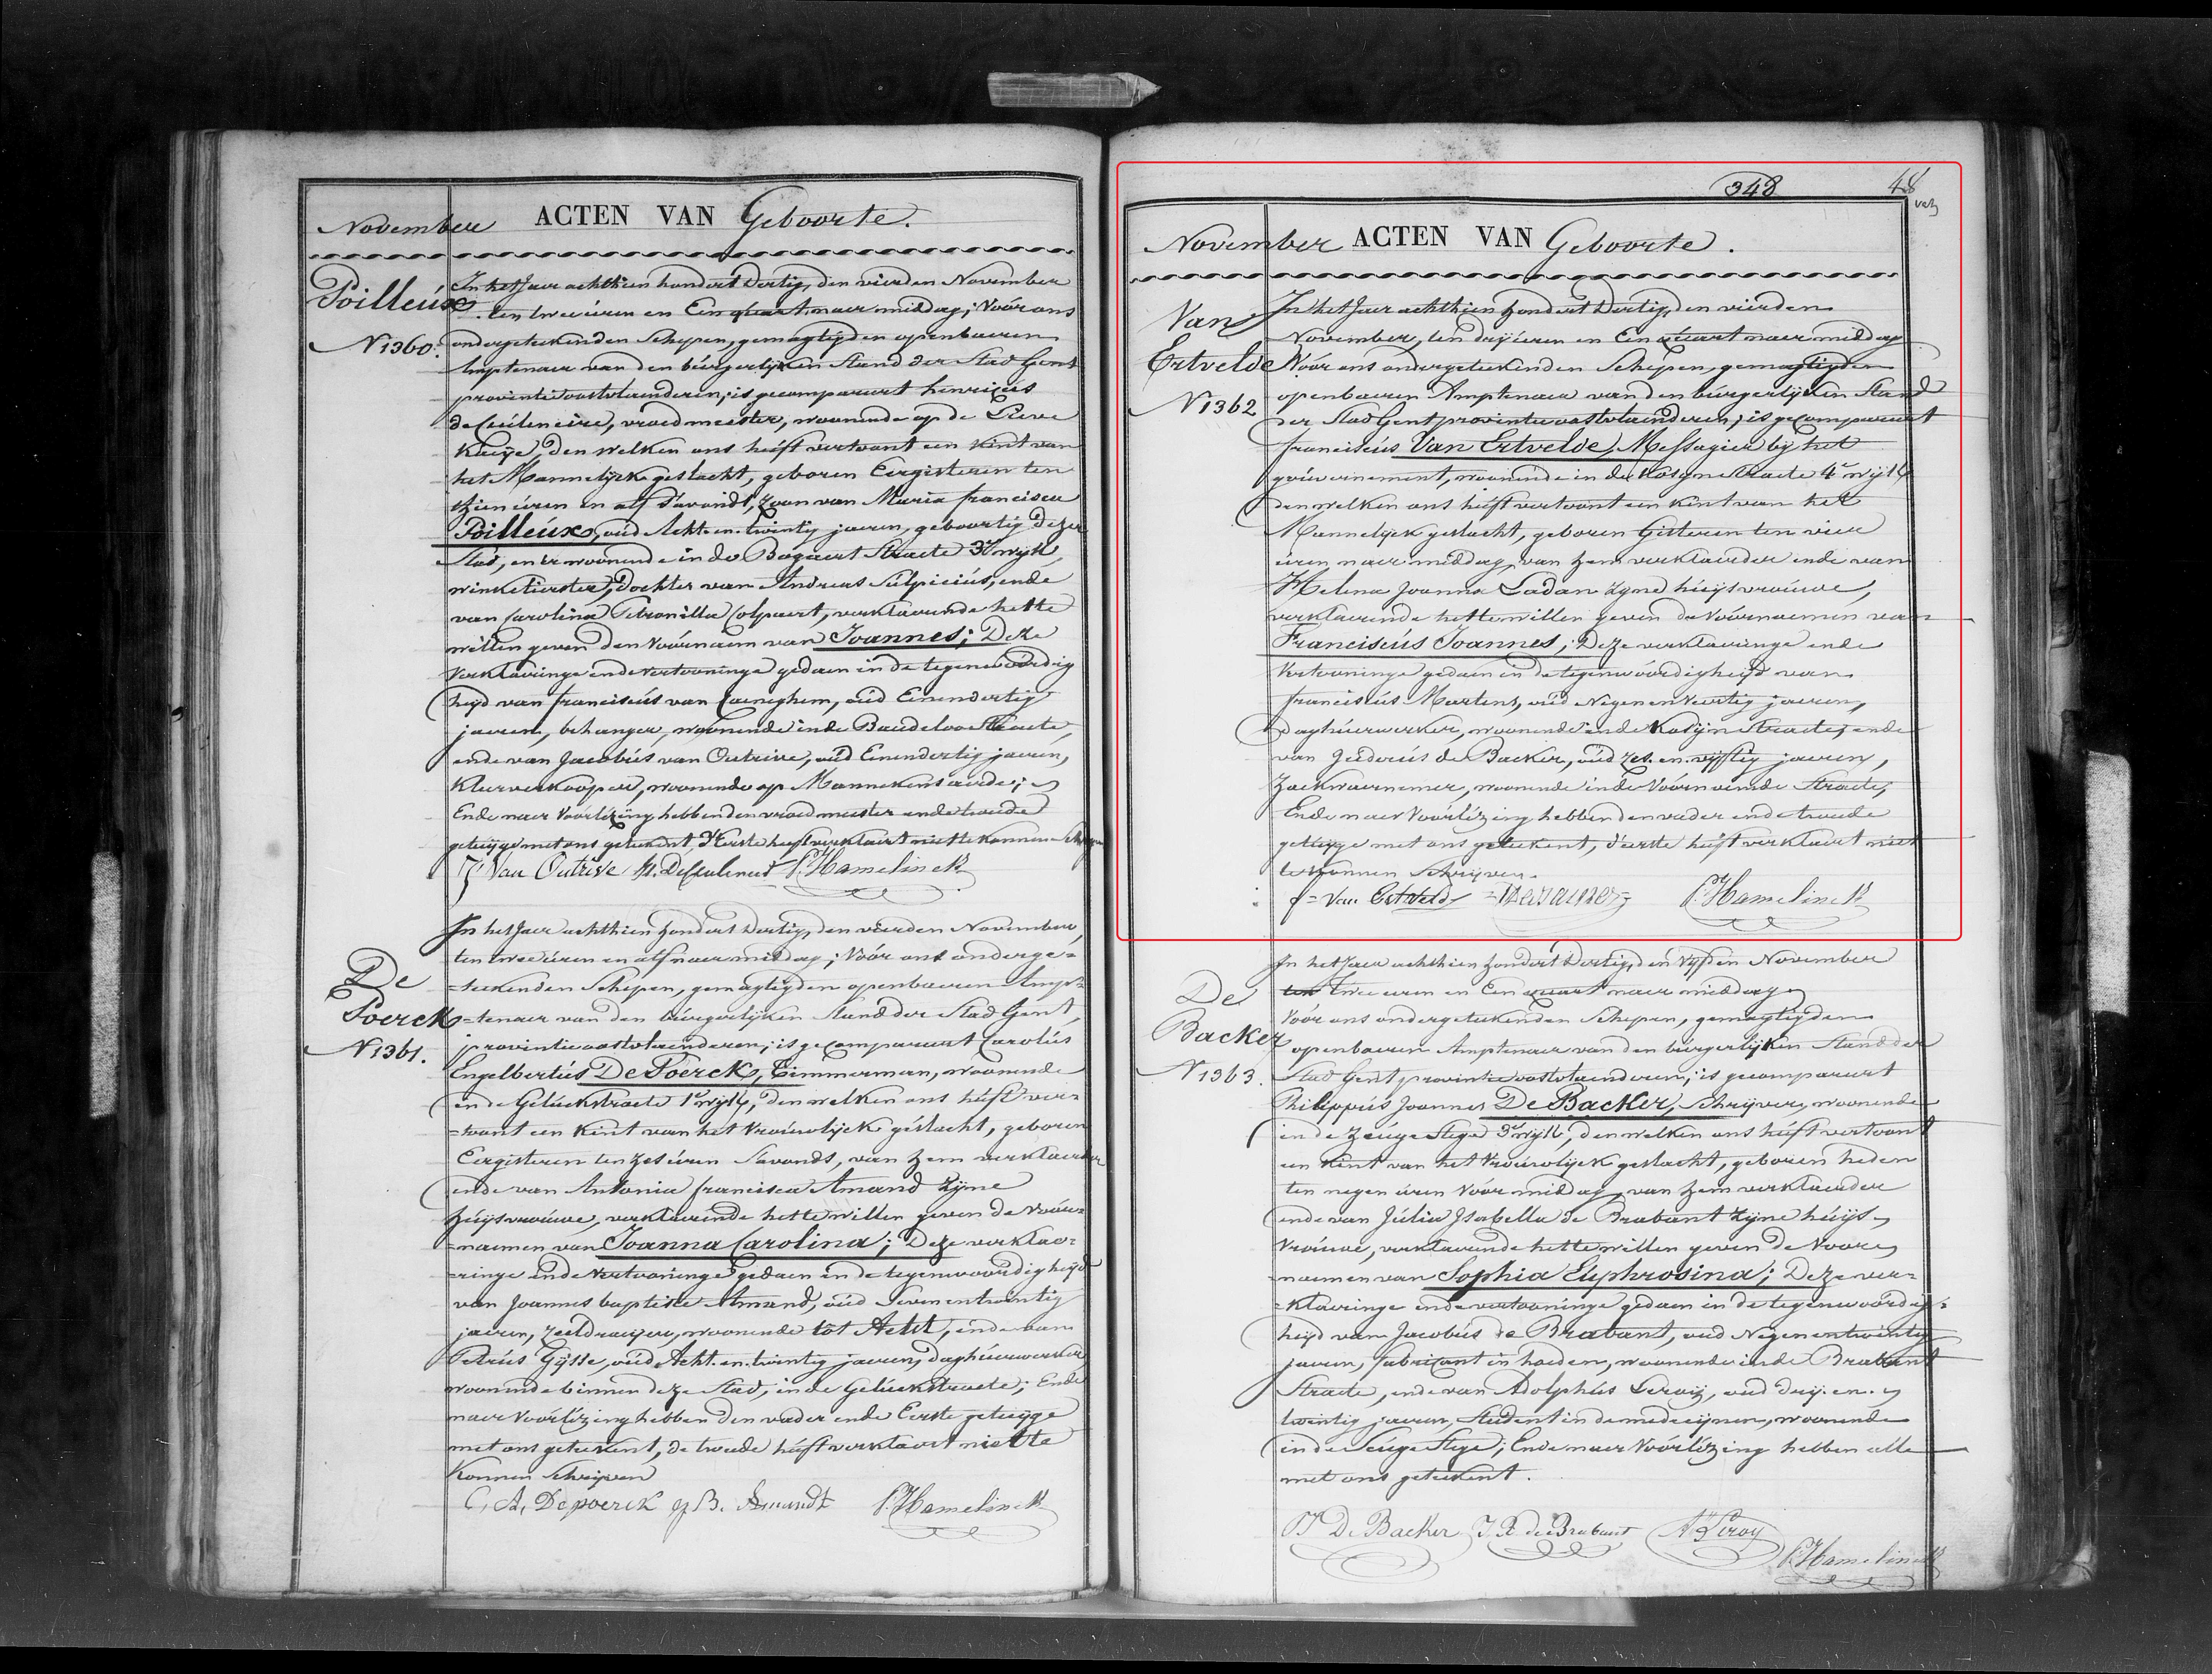 November ACTEN VAN Geboorte.
Poilleux
N 1360.
In het Jaer achthien hondert Dertig, den vierden November
ten twee üren en Een quart naer middag; Vóór ons
ondergeteekenden Schepen, gemagtigden openbaeren
Amptenaer van den bürgerlyken Stand der Stad Gent
provintie oostvlaenderen; is gecompareert henricüs
de Ceüleneire, vroedmeester, woonende op de Lieve
Kaeÿe, den welken ons heéft vertoont een Kint van
het Mannelyck geslacht, geboren Eergisteren ten
thien üren en alf d'avondt, Zoon van Maria francisca
Poilleux, oüd Acht-en-twintig jaeren, geboortig dezer
Stad, en er woonende in de Bogaert Straete 3e wyk,
winkelierster, Dochter van Andreas Sülpiciüs, ende
van Carolina Petronilla Colpaert, verklaerende hette
willen geven den Voórnaem van Joannes; Deze
Verklaeringe ende vertooninge gedaen in de tegenwoórdig
heÿd van franciscüs van Caeneghem, oüd Eenendertig
jaeren, behanger, woonende in de Baudeloo Straete,
ende van Jacobüs van Outrive, oüd Eenendertig jaeren,
Kleerverkooper, woonende op Mannekens aerde;
Ende naer Voórlézing hebben den vroedmeester ende tweede
getüÿge met ons geteekent, d'Eerste heeft verklaert niet te konnen Schryven
J Van Outrive H. DeCeuleneer P. Hamelinck
De
Poerck
N 1361.
In het Jaer achthien hondert Dertig, den vierden November,
ten twee üren en alf naer middag; Vóór ons onderge=
=teekenden Schepen, gemagtigden openbaeren Amp=
=tenaer van den bürgerlyken Stand der Stad Gent,
provintie oostvlaenderen; is gecompareert Carolüs
Engelbertüs De Poerck, Timmerman, woonende
in de Gelückstraete 1e wyk, den welken ons heéft ver=
=toont een Kint van het Vroüwlyck géslacht, geboren
Eergisteren ten zes üren Savonds, van hem verklaerder
ende van Antonia francisca Amand Zyne
hüÿsvroüwe, verklaerende hette willen geven de Voór=
=naemen van Joanna Carolina; Deze verklae=
=ringe ende Vertooninge gedaen in de tegenwoórdigheÿd
van Joannes baptiste Amand, oüd Sevenentwintig
jaeren, Zeeldraeÿer, woonende tot Aelst, ende van
Petrüs Gÿsse, oüd Acht-en-twintig jaeren, daghüerwerker,
woonende binnen deze Stad, in de Gelückstraete; Ende
naer Voórlézing hebben den vader ende Eerste getüÿge
met ons geteekent, de tweede heéft verklaert niet te
Konnen Schryven
C, A, Depoerck J B. Amandt P. Hamelinck
348 48
November ACTEN VAN Geboorte.
Van
Ertvelde
N 1362
In het Jaer achthien hondert Dertig, den vierden
November, ten drÿ üren en Een qüart naer middag
Vóór ons ondergeteekenden Schepen, gemagtigden
openbaeren Amptenaer van den bürgerlyken Stand
der Stad Gent provintie oostvlaenderen; is gecompareert
franciscüs Van Ertvelde, Messagier bÿ het
goüvernement, woonende in de Kolÿnestraete 4e wyk
den welken ons heéft vertoont een Kint van het
Mannelyck geslacht, geboren Gisteren ten vier
üren naer middag, van hem verklaerder ende van
Helena Joanna Ladan Zyne hüÿsvroüwe,
verklaerende hette willen geven de Voórnaemen van
Franciscüs Joannes; Deze verklaeringe ende
Vertooninge gedaen in de tegenwoórdigheÿd van
franciscüs Martens, oüd Negenenveertig jaeren,
daghüerwerker, woonende in de Kolÿnstraete, ende
van de Backer, oüd zes-en-vÿftig jaeren,
Zaekwaernemer, woonende in de Voórnoemde Straete,
Ende naer Voórlézing hebben den vader ende tweede
getüÿge met ons geteekent, d'eerste heéft verklaert niet
te konnen Schryven.
f= Van Ertvelde P. Hamelinck
De
Backer
N 1363.
In het Jaer achthien hondert Dertig, den Vÿfden November
ten twee üren en Een quart naer middag
Vóór ons ondergeteekenden Schepen, gemagtigden
openbaeren Amptenaer van den bürgerlyken Stand der
Stad Gent, provintie oostvlaenderen; is gecompareert
Philippüs Joannes De Backer, Schrÿver, woonende
in de Zeüge Stege 3e wyk, den welken ons heéft vertoont
een Kint van het Vroüwlyck geslacht, geboren heden
ten negen üren Voór middag, van hem verklaerder
ende van Júlia Isabella de Brabant Zyne hüÿs
Vroüwe, verklaerende hette willen geven de Voor
=naemen van Sophia Euphrosina; Deze ver=
=klaeringe ende vertooninge gedaen in de tegenwoórdig=
heÿd van Jacobüs de Brabant, oud Negenentwintig
jaeren, fabricant in hoeden, woonende in de Brabant
Straete, ende van Adolphüs Leroÿ, oud drÿ-en-
twintig jaeren, Student in de medecÿnen, woonende
in de Seüge Stege; Ende naer Voórlézing hebben alle
met ons geteekent.
P J De Backer J. X. de Brabant A Leroy
P. Hamelinck